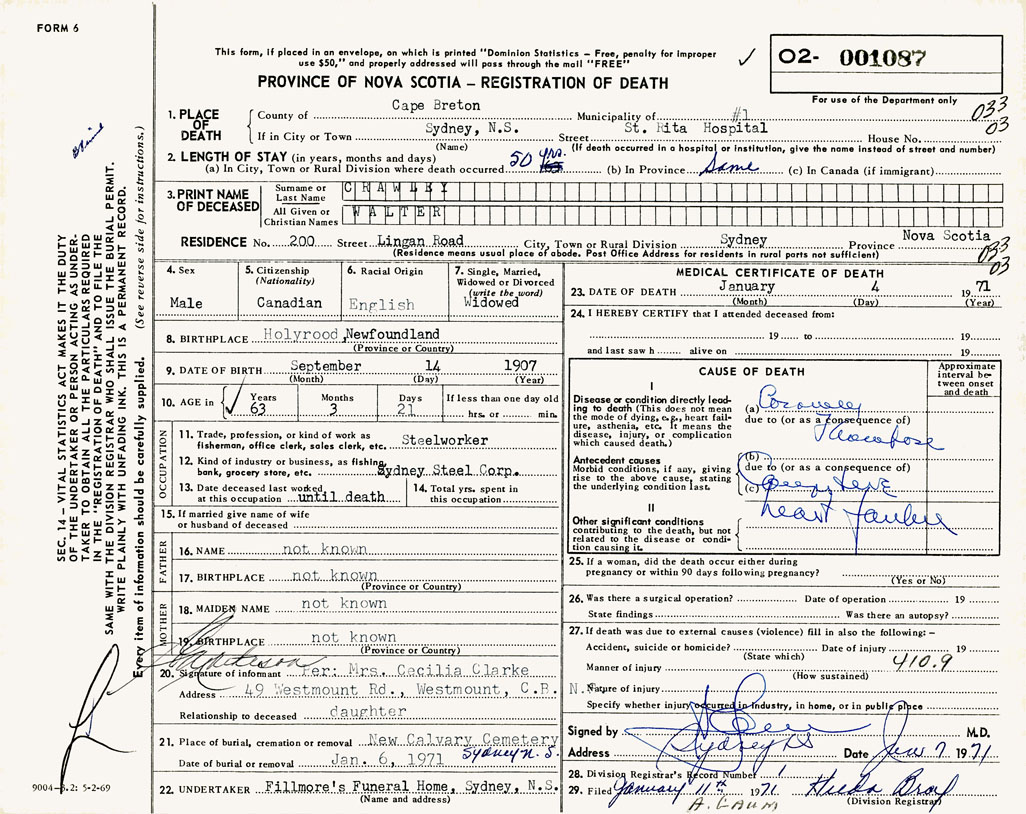 FORM 6
This form, if placed in an envelope, on which is printed "Dominion Statistics – Free, penalty for improper
use $50," and properly addressed will pass through the mail "FREE"
✓
O2- 001087
For use of the Department only
PROVINCE OF NOVA SCOTIA – REGISTRATION OF DEATH
033
03
1. PLACE OF DEATH
County of Cape Breton Municipality of #1
If in City or Town Sydney, N.S. Street St. Rita Hospital House No.
(Name) (If death occurred in a hospital or institution, give the name instead of street and number)
2. LENGTH OF STAY (in years, months and days)
(a) In City, Town or Rural Division where death occurred 50 yrs. (b) In Province Same (c) In Canada (if immigrant)
3. PRINT NAME OF DECEASED
Surname or Last Name CRAWLEY
All Given or Christian Names WALTER
RESIDENCE No. 200 Street Lingan Road City, Town or Rural Division Sydney Province Nova Scotia
(Residence means usual place of abode. Post Office Address for residents in rural parts not sufficient)
033
03
4. Sex
Male
5. Citizenship (Nationality)
Canadian
6. Racial Origin
English
7. Single, Married, Widowed or Divorced (write the word)
Widowed
8. BIRTHPLACE Holyrood, Newfoundland
(Province or Country)
9. DATE OF BIRTH September 14 1907
(Month) (Day) (Year)
10. AGE in ✓ Years Months Days If less than one day old
63 3 21 hrs. or min.
OCCUPATION
11. Trade, profession, or kind of work as fisherman, office clerk, sales clerk, etc. Steelworker
12. Kind of industry or business, as fishing, bank, grocery store, etc. Sydney Steel Corp.
13. Date deceased last worked at this occupation until death
14. Total yrs. spent in this occupation
15. If married give name of wife or husband of deceased
FATHER
16. NAME not known
17. BIRTHPLACE not known
(Province or Country)
MOTHER
18. MAIDEN NAME not known
19. BIRTHPLACE not known
(Province or Country)
20. Signature of informant Per: Mrs. Cecilia Clarke
Address 49 Westmount Rd., Westmount, C.B. N.S.
Relationship to deceased daughter
21. Place of burial, cremation or removal New Calvary Cemetery
Sydney N.S.
Date of burial or removal Jan. 6, 1971
22. UNDERTAKER Fillmore's Funeral Home, Sydney, N.S.
(Name and address)
MEDICAL CERTIFICATE OF DEATH
23. DATE OF DEATH January 4 1971
(Month) (Day) (Year)
24. I HEREBY CERTIFY that I attended deceased from:
19 to 19
and last saw h alive on 19
CAUSE OF DEATH
Approximate interval between onset and death
I
Disease or condition directly leading to death (This does not mean the mode of dying, e.g., heart failure, asthenia, etc. It means the disease, injury, or complication which caused death.)
(a) Coronary
due to (or as a consequence of)
Thrombose
Antecedent causes
Morbid conditions, if any, giving rise to the above cause, stating the underlying condition last.
(b)
due to (or as a consequence of)
(c) Congestive
heart failure
II
Other significant conditions
contributing to the death, but not related to the disease or condition causing it.
25. If a woman, did the death occur either during pregnancy or within 90 days following pregnancy?
(Yes or No)
26. Was there a surgical operation? Date of operation 19
State findings Was there an autopsy?
27. If death was due to external causes (violence) fill in also the following: –
Accident, suicide or homicide? Date of injury 19
(State which)
410.9
Manner of injury
(How sustained)
Nature of injury
Specify whether injury occurred in industry, in home, or in public place
Signed by M.D.
Address Sydney NS Date Jan 7 1971
28. Division Registrar's Record Number 1
29. Filed January 11th 1971 Hilda Bray
(Division Registrar)
SEC. 14 – VITAL STATISTICS ACT MAKES IT THE DUTY
OF THE UNDERTAKER OR PERSON ACTING AS UNDER-
TAKER TO OBTAIN ALL THE PARTICULARS REQUIRED
IN THE "REGISTRATION OF DEATH" AND TO FILE THE
SAME WITH THE DIVISION REGISTRAR WHO SHALL ISSUE THE BURIAL PERMIT.
WRITE PLAINLY WITH UNFADING INK. THIS IS A PERMANENT RECORD.
Every item of information should be carefully supplied. (See reverse side for instructions.)